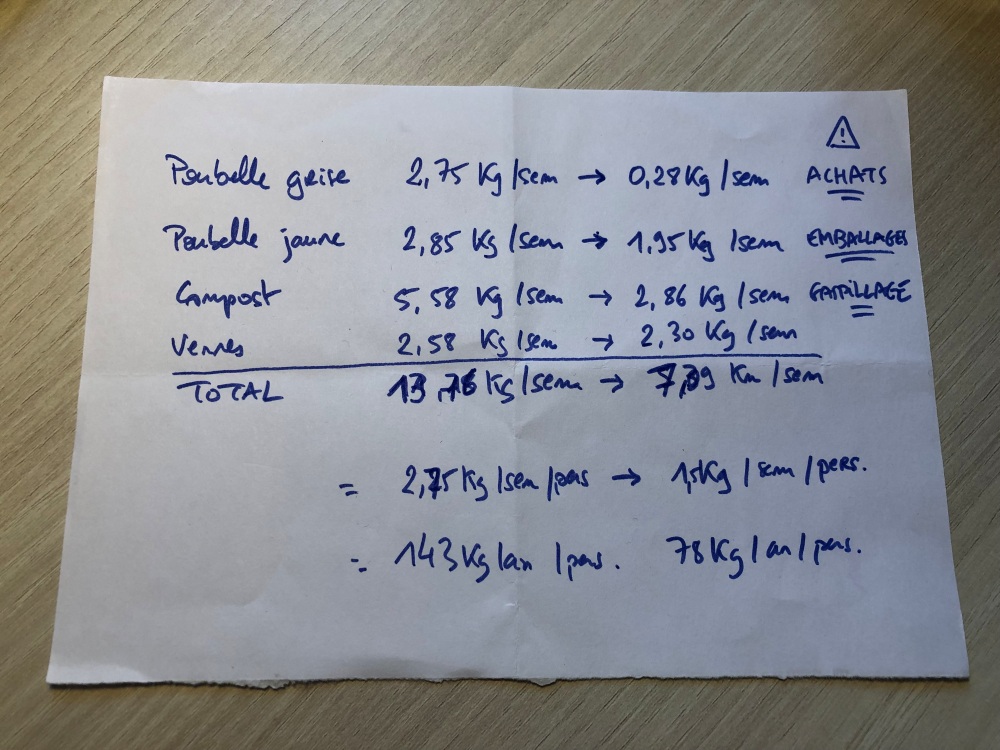 ⚠
Poubelle grise 2,75 Kg/sem → 0,28 Kg/sem ACHATS
Poubelle jaune 2,85 Kg/sem → 1,95 Kg/sem EMBALLAGES
Compost 5,58 Kg/sem → 2,86 Kg/sem GASPILLAGE
Verres 2,58 Kg/sem → 2,30 Kg/sem
TOTAL 13,76 Kg/sem → 7,39 Km/sem
= 2,75 Kg/sem/pers → 1,5 Kg/sem/pers.
= 143 Kg/an/pers. 78 Kg/an/pers.